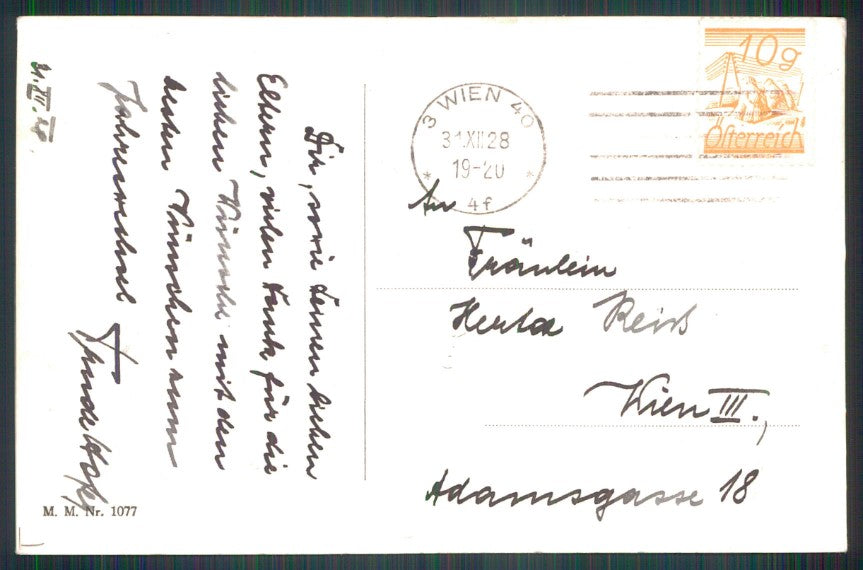 31.XII.28.
Dir, sowie deinen lieben
Eltern, vielen Dank für die
lieben Wünsche mit den
besten Wünschen zum
Jahreswechsel
Trude
M. M. Nr. 1077
3 WIEN 40
31.XII.28
19-20
* 4f *
10g
Österreich
An
Fräulein
Herta Reiß
Wien III.,
Adamsgasse 18